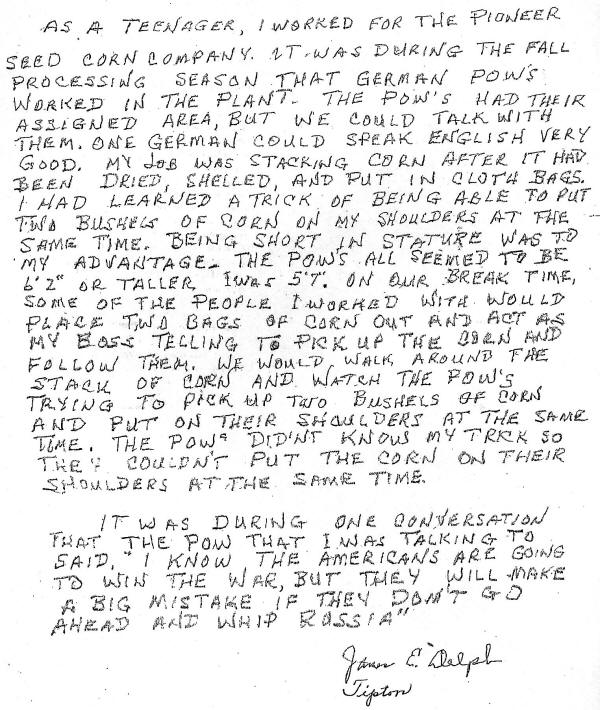 AS A TEENAGER, I WORKED FOR THE PIONEER
SEED CORN COMPANY. IT WAS DURING THE FALL
PROCESSING SEASON THAT GERMAN POW'S
WORKED IN THE PLANT. THE POW'S HAD THEIR
ASSIGNED AREA, BUT WE COULD TALK WITH
THEM. ONE GERMAN COULD SPEAK ENGLISH VERY
GOOD. MY JOB WAS STACKING CORN AFTER IT HAD
BEEN DRIED, SHELLED, AND PUT IN CLOTH BAGS.
I HAD LEARNED A TRICK OF BEING ABLE TO PUT
TWO BUSHELS OF CORN ON MY SHOULDERS AT THE
SAME TIME. BEING SHORT IN STATURE WAS TO
MY ADVANTAGE. THE POW'S ALL SEEMED TO BE
6'2" OR TALLER I WAS 5'7". ON OUR BREAK TIME,
SOME OF THE PEOPLE I WORKED WITH WOULD
PLACE TWO BAGS OF CORN OUT AND ACT AS
MY BOSS TELLING TO PICK UP THE CORN AND
FOLLOW THEM. WE WOULD WALK AROUND THE
STACK OF CORN AND WATCH THE POW'S
TRYING TO PICK UP TWO BUSHELS OF CORN
AND PUT ON THEIR SHOULDERS AT THE SAME
TIME. THE POWS DIDN'T KNOW MY TRICK SO
THEY COULDN'T PUT THE CORN ON THEIR
SHOULDERS AT THE SAME TIME.
IT WAS DURING ONE CONVERSATION
THAT THE POW THAT I WAS TALKING TO
SAID, "I KNOW THE AMERICANS ARE GOING
TO WIN THE WAR, BUT THEY WILL MAKE
A BIG MISTAKE IF THEY DON'T GO
AHEAD AND WHIP RUSSIA"
James E. Delph
Tipton